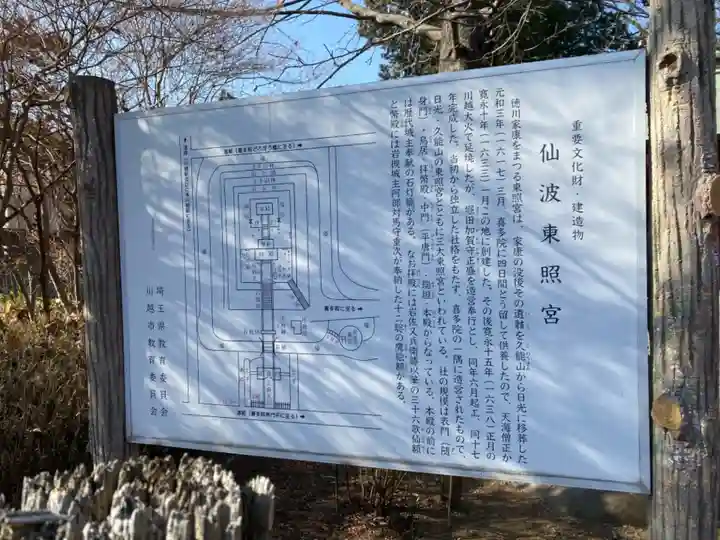 重要文化財・建造物
仙波東照宮
徳川家康をまつる東照宮は、家康の没後その遺骸を久能山から日光に移葬した
元和三年(一六一七)三月、喜多院に四日間とう留して供養したので、天海僧正が
寛永十年(一六三三)一月この地に創建した。その後寛永十五年(一六三八)正月の
川越大火で延焼したが、堀田加賀守正盛を造営奉行とし、同年六月起工、同十七
年完成した。当初から独立した社格をもたず、喜多院の一隅に造営されたもので、
日光・久能山の東照宮とともに三大東照宮といわれている。社の規模は表門(随
身門)・鳥居・拝幣殿・中門(平唐門)・瑞垣・本殿からなっている。本殿の前に
は歴代城主奉献の石灯籠がある。なお拝殿には岩佐又兵衛勝以筆の三十六歌仙額
と幣殿には岩槻城主阿部対馬守重次が奉納した十二聡の鷹絵額がある。
埼玉県教育委員会
川越市教育委員会